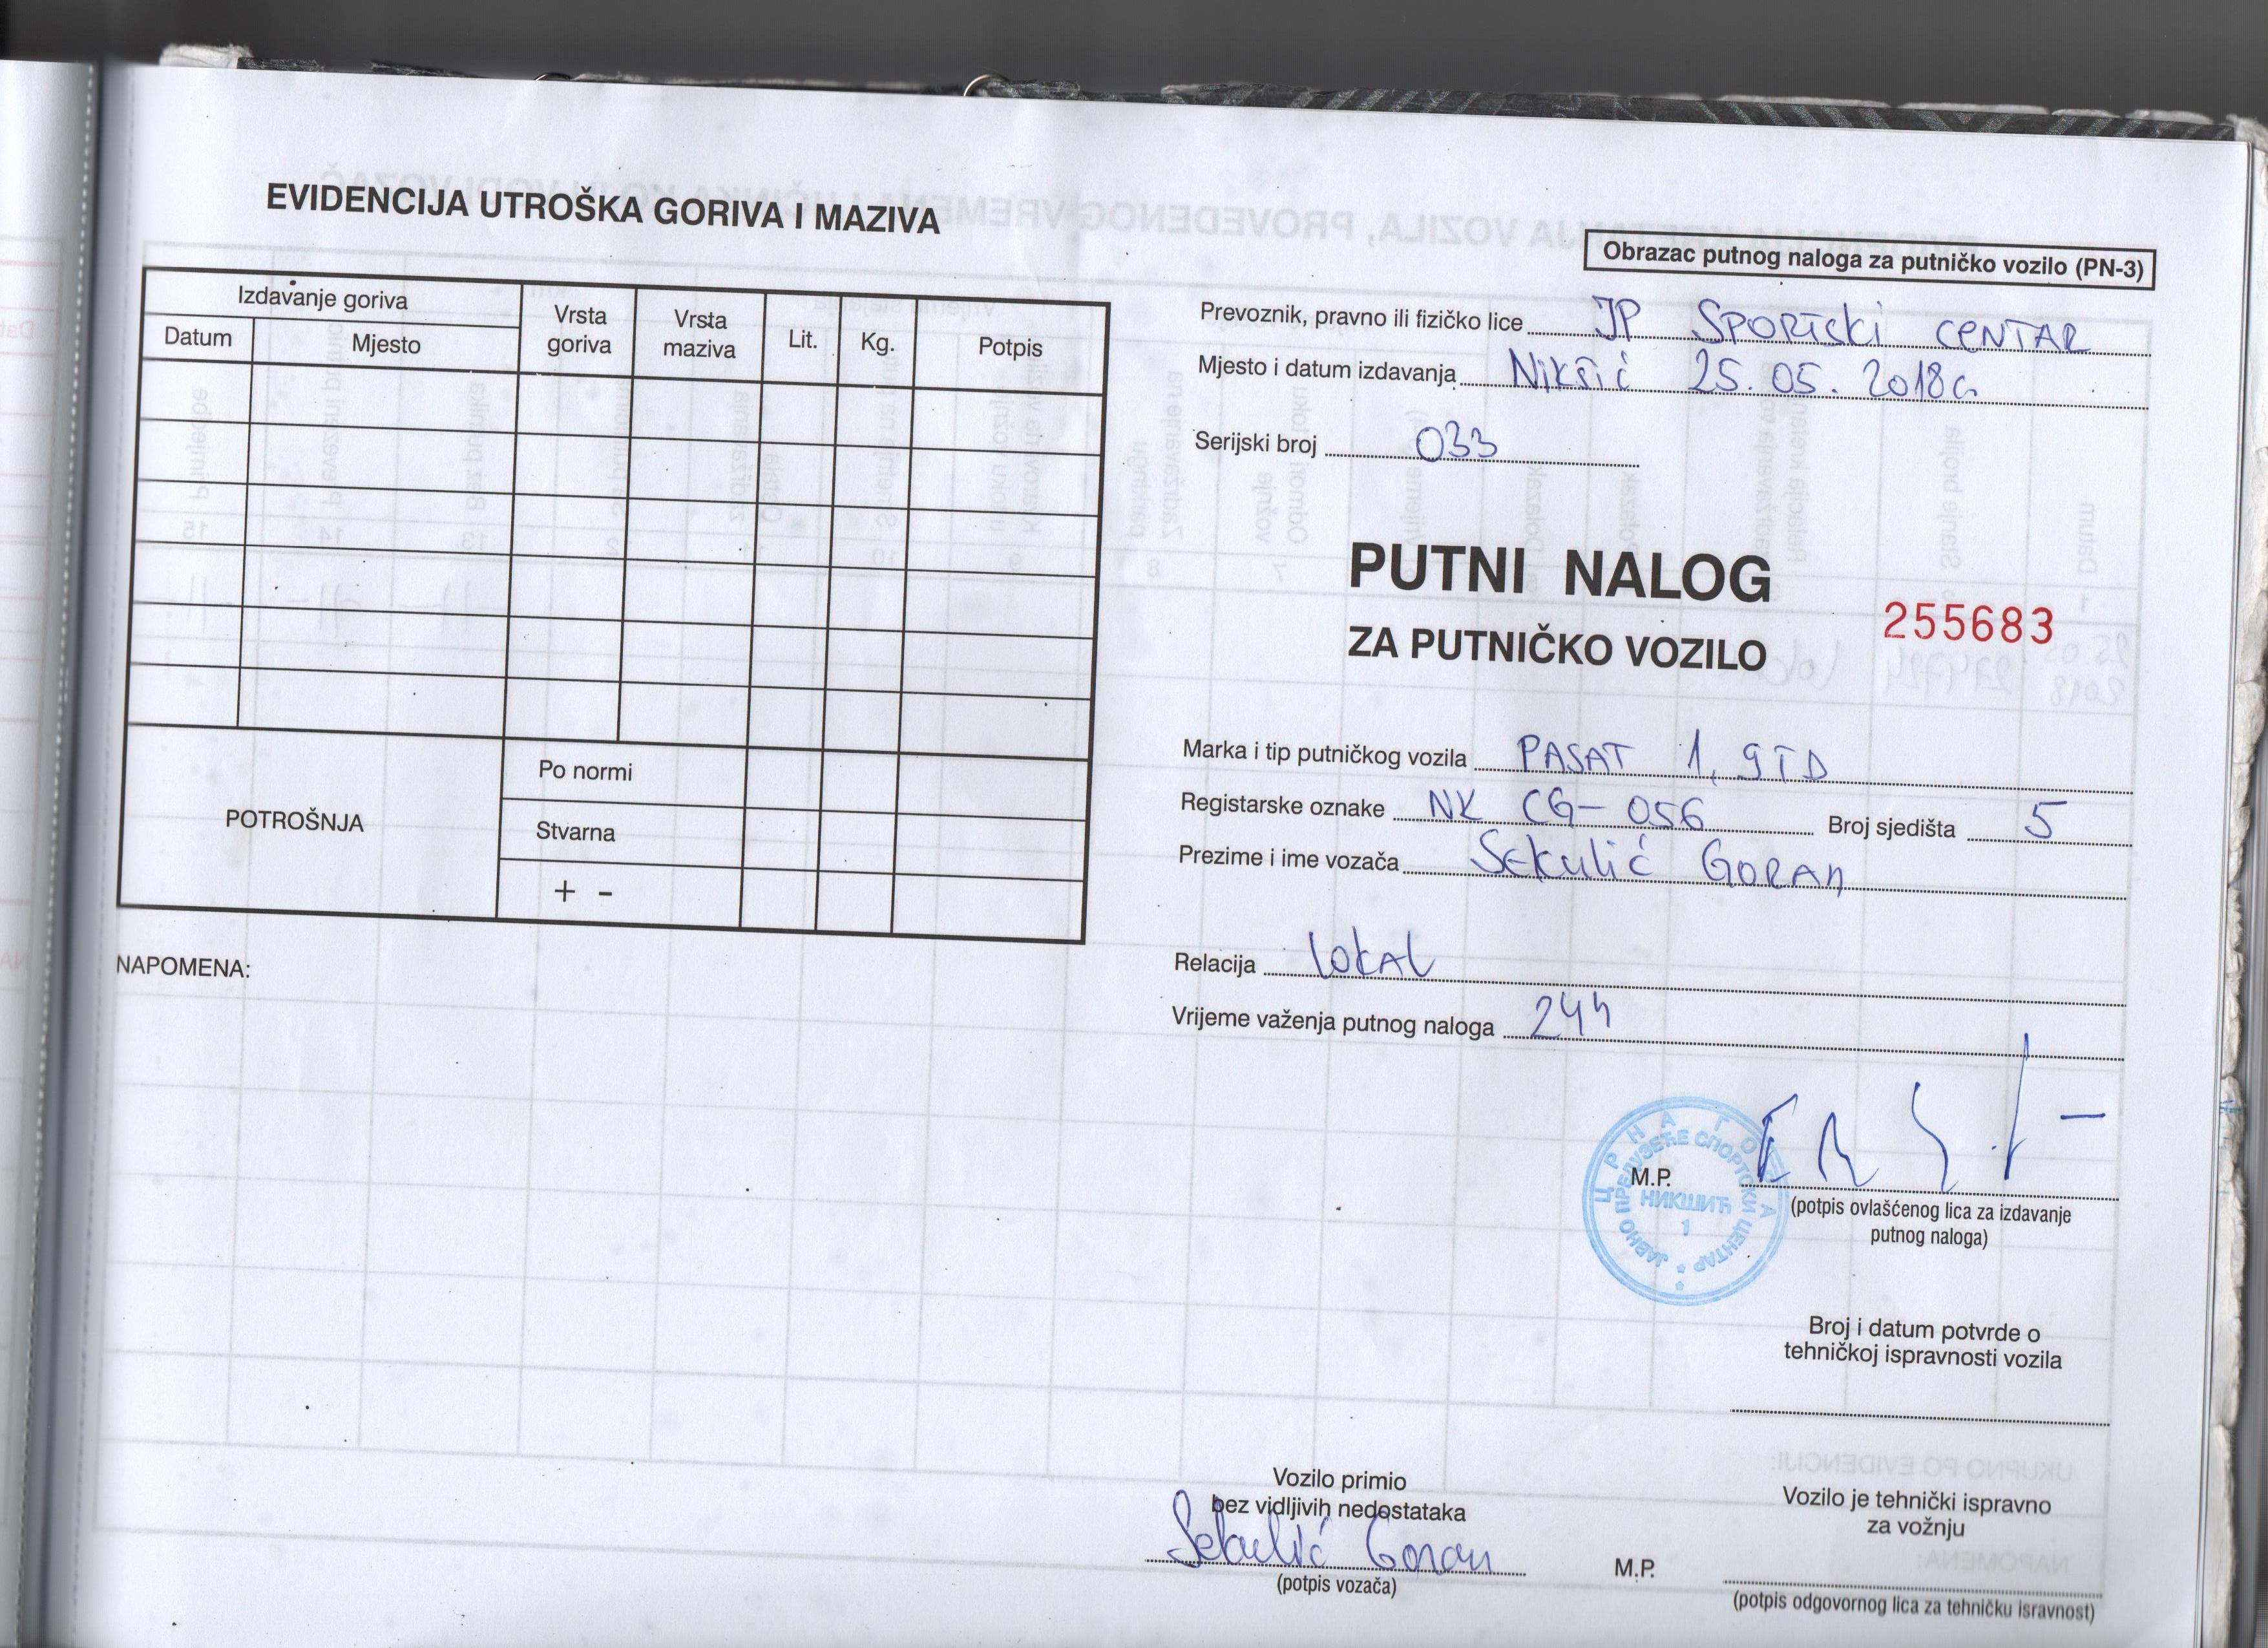 EVIDENCIJA UTROŠKA GORIVA I MAZIVA
Izdavanje goriva
Datum
Mjesto
Vrsta goriva
Vrsta maziva
Lit.
Kg.
Potpis
POTROŠNJA
Po normi
Stvarna
+ -
NAPOMENA:
Obrazac putnog naloga za putničko vozilo (PN-3)
Prevoznik, pravno ili fizičko lice JP SPORTSKI CENTAR
Mjesto i datum izdavanja Nikšić 25.05.2018G
Serijski broj 033
PUTNI NALOG
255683
ZA PUTNIČKO VOZILO
Marka i tip putničkog vozila PASAT 1,9TD
Registarske oznake NK CG-056 Broj sjedišta 5
Prezime i ime vozača Sekulić GORAN
Relacija lokal
Vrijeme važenja putnog naloga 24h
ЦРНА ГОРА
ЈАВНО ПРЕДУЗЕЋЕ СПОРТСКИ ЦЕНТАР
НИКШИЋ
1
M.P.
(potpis ovlašćenog lica za izdavanje
putnog naloga)
Broj i datum potvrde o
tehničkoj ispravnosti vozila
Vozilo primio
bez vidljivih nedostataka
Sekulić Goran
(potpis vozača)
M.P.
Vozilo je tehnički ispravno
za vožnju
(potpis odgovornog lica za tehničku isravnost)